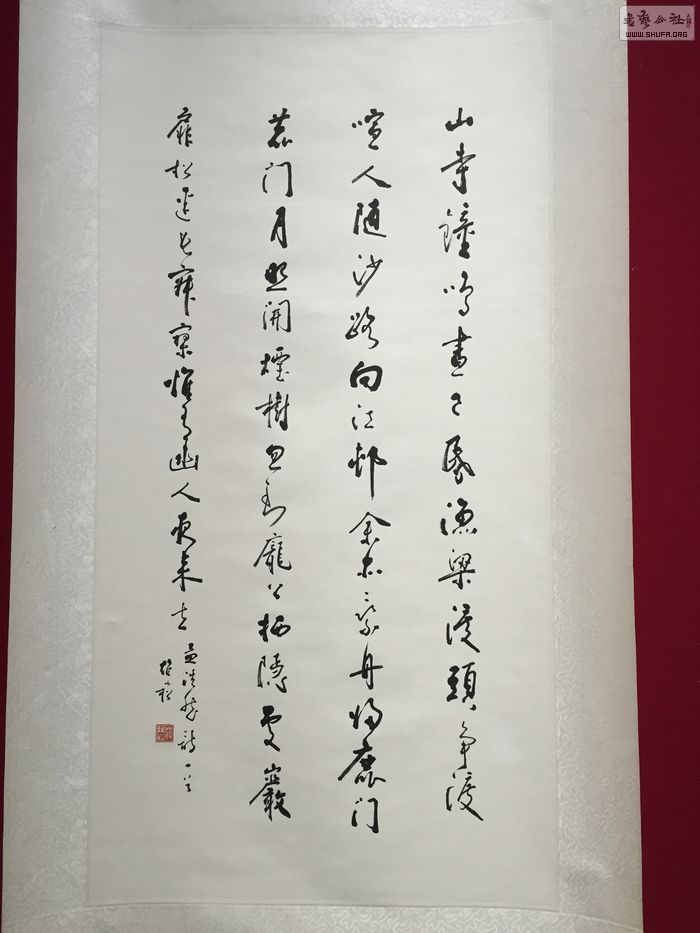 山寺鐘鳴晝已昏漁梁渡頭争渡
喧人随沙路向江邨余亦乘舟歸鹿门
鹿门月照開煙樹忽到龐公栖隱處巖
扉松逕長寂寥惟有幽人夜来去 孟浩然詩一首
書藝公社
WWW.SHUFA.ORG